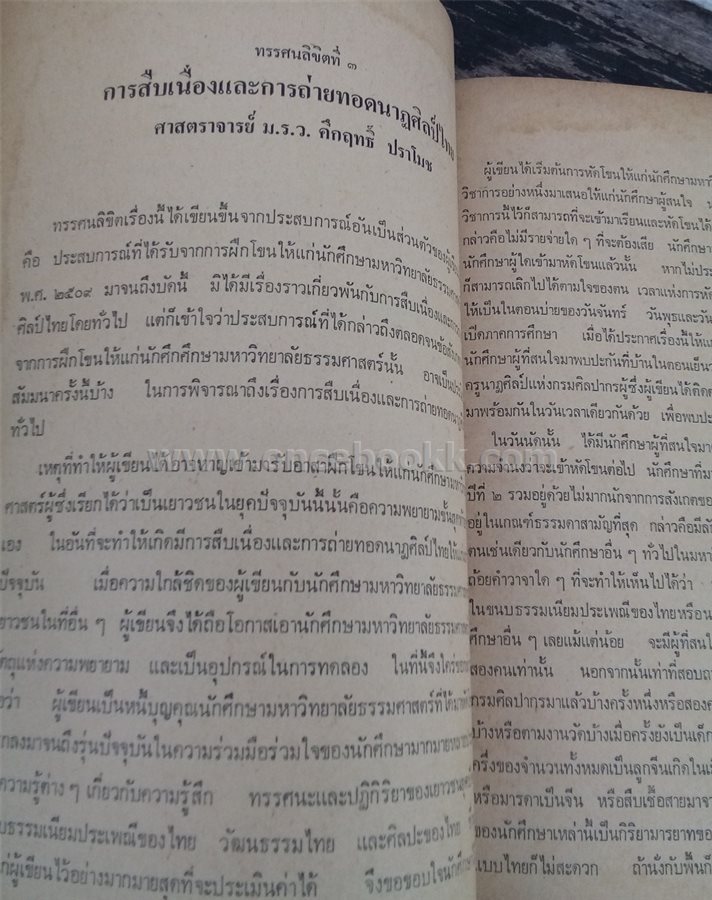 ทรรศนลิขิตที่ ๓
การสืบเนื่องและการถ่ายทอดนาฏศิลป์ไทย
ศาสตราจารย์ ม.ร.ว. คึกฤทธิ์ ปราโมช
ทรรศนลิขิตเรื่องนี้ได้เขียนขึ้นจากประสบการณ์อันเป็นส่วนตัวของผู้เขียน
คือ ประสบการณ์ที่ได้รับจากการฝึกโขนให้แก่นักศึกษามหาวิทยาลัยธรรมศาสตร์
พ.ศ. ๒๕๐๙ มาจนถึงบัดนี้ มิได้มีเรื่องราวเกี่ยวพันกับการสืบเนื่องและการ
ศิลป์ไทยโดยทั่วไป แต่ก็เข้าใจว่าประสบการณ์ที่ได้กล่าวถึงตลอดจนข้อสังเกต
จากการฝึกโขนให้แก่นักศึกศึกษามหาวิทยาลัยธรรมศาสตร์นั้น อาจเป็น
สัมมนาครั้งนี้บ้าง ในการพิจารณาถึงเรื่องการสืบเนื่องและการถ่ายทอด
ทั่วไป
เหตุที่ทำให้ผู้เขียนได้อาจหาญเข้ามารับอาสาฝึกโขนให้แก่นักศึกษามหาวิ
ศาสตร์ผู้ซึ่งเรียกได้ว่าเป็นเยาวชนในยุคปัจจุบันนี้นั้นคือความพยายาม
เอง ในอันที่จะทำให้เกิดมีการสืบเนื่องและการถ่ายทอดนาฏศิลป์ไทย
ปัจจุบัน เมื่อความใกล้ชิดของผู้เขียนกับนักศึกษามหาวิทยาลัยธรรมศา
ยาวชนในที่อื่น ๆ ผู้เขียนจึงได้ถือโอกาสเอานักศึกษามหาวิทยาลัยธรรมศา
ตถุแห่งความพยายาม และเป็นอุปกรณ์ในการทดลอง ในที่นี้จึงใคร่ขอ
อว่า ผู้เขียนเป็นหนี้บุญคุณนักศึกษามหาวิทยาลัยธรรมศาสตร์ที่ได้
กลงมาจนถึงรุ่นปัจจุบันในความร่วมมือร่วมใจของนักศึกษามากมาย
ความรู้ต่าง ๆ เกี่ยวกับความรู้สึก ทรรศนะและปฏิกิริยาของเยาวชน
บธรรมเนียมประเพณีของไทย วัฒนธรรมไทย และศิลปะของไทย
ก่ผู้เขียนไว้อย่างมากมายสุดที่จะประเมินค่าได้ จึงขอขอบใจนักศึก
ผู้เขียนได้เริ่มต้นการหัดโขนให้แก่นักศึกษามหาวิ
วิชาการอย่างหนึ่งมาเสนอให้แก่นักศึกษาผู้สนใจ
วิชาการนี้ไว้ก็สามารถที่จะเข้ามาเรียนและหัดโขนได้
กล่าวคือไม่มีรายจ่ายใด ๆ ที่จะต้องเสีย นักศึกษา
นักศึกษาผู้ใดเข้ามาหัดโขนแล้วนั้น หากไม่ประ
ก็สามารถเลิกไปได้ตามใจของตน เวลาแห่งการหัด
ให้เป็นในตอนบ่ายของวันจันทร์ วันพุธและวัน
เปิดภาคการศึกษา เมื่อได้ประกาศเรื่องนี้ให้แ
นักศึกษาผู้ที่สนใจมาพบปะกันที่บ้านในตอนเย็น
ครูนาฏศิลป์แห่งกรมศิลปากรผู้ซึ่งผู้เขียนได้ติด
มาพร้อมกันในวันเวลาเดียวกันด้วย เพื่อพบปะ
ในวันนัดนั้น ได้มีนักศึกษาผู้ที่สนใจมา
ความจำนงว่าจะเข้าหัดโขนต่อไป นักศึกษาที่มา
ปีที่ ๒ รวมอยู่ด้วยไม่มากนักจากการสังเกตของ
อยู่ในเกณฑ์ธรรมดาสามัญที่สุด กล่าวคือมี
ตนเช่นเดียวกับนักศึกษาอื่น ๆ ทั่วไปในมหา
ถ้อยคำวาจาใด ๆ ที่จะทำให้เห็นไปได้ว่า
ในขนบธรรมเนียมประเพณีของไทยหรือ
ศึกษาอื่น ๆ เลยแม้แต่น้อย จะมีผู้ที่สนใ
สองคนเท่านั้น นอกจากนั้นเท่าที่สอบถา
กรมศิลปากรมาแล้วบ้างครั้งหนึ่งหรือสอง
บ้างหรือตามงานวัดบ้างเมื่อครั้งยังเป็นเด็ก
ครึ่งของจำนวนทั้งหมดเป็นลูกจีนเกิดในเมื
หรือมารดาเป็นจีน หรือสืบเชื้อสายมาจา
ของนักศึกษาเหล่านี้เป็นกิริยามารยาทของ
แบบไทยก็ไม่สะดวก ถ้านั่งกับพื้นก็